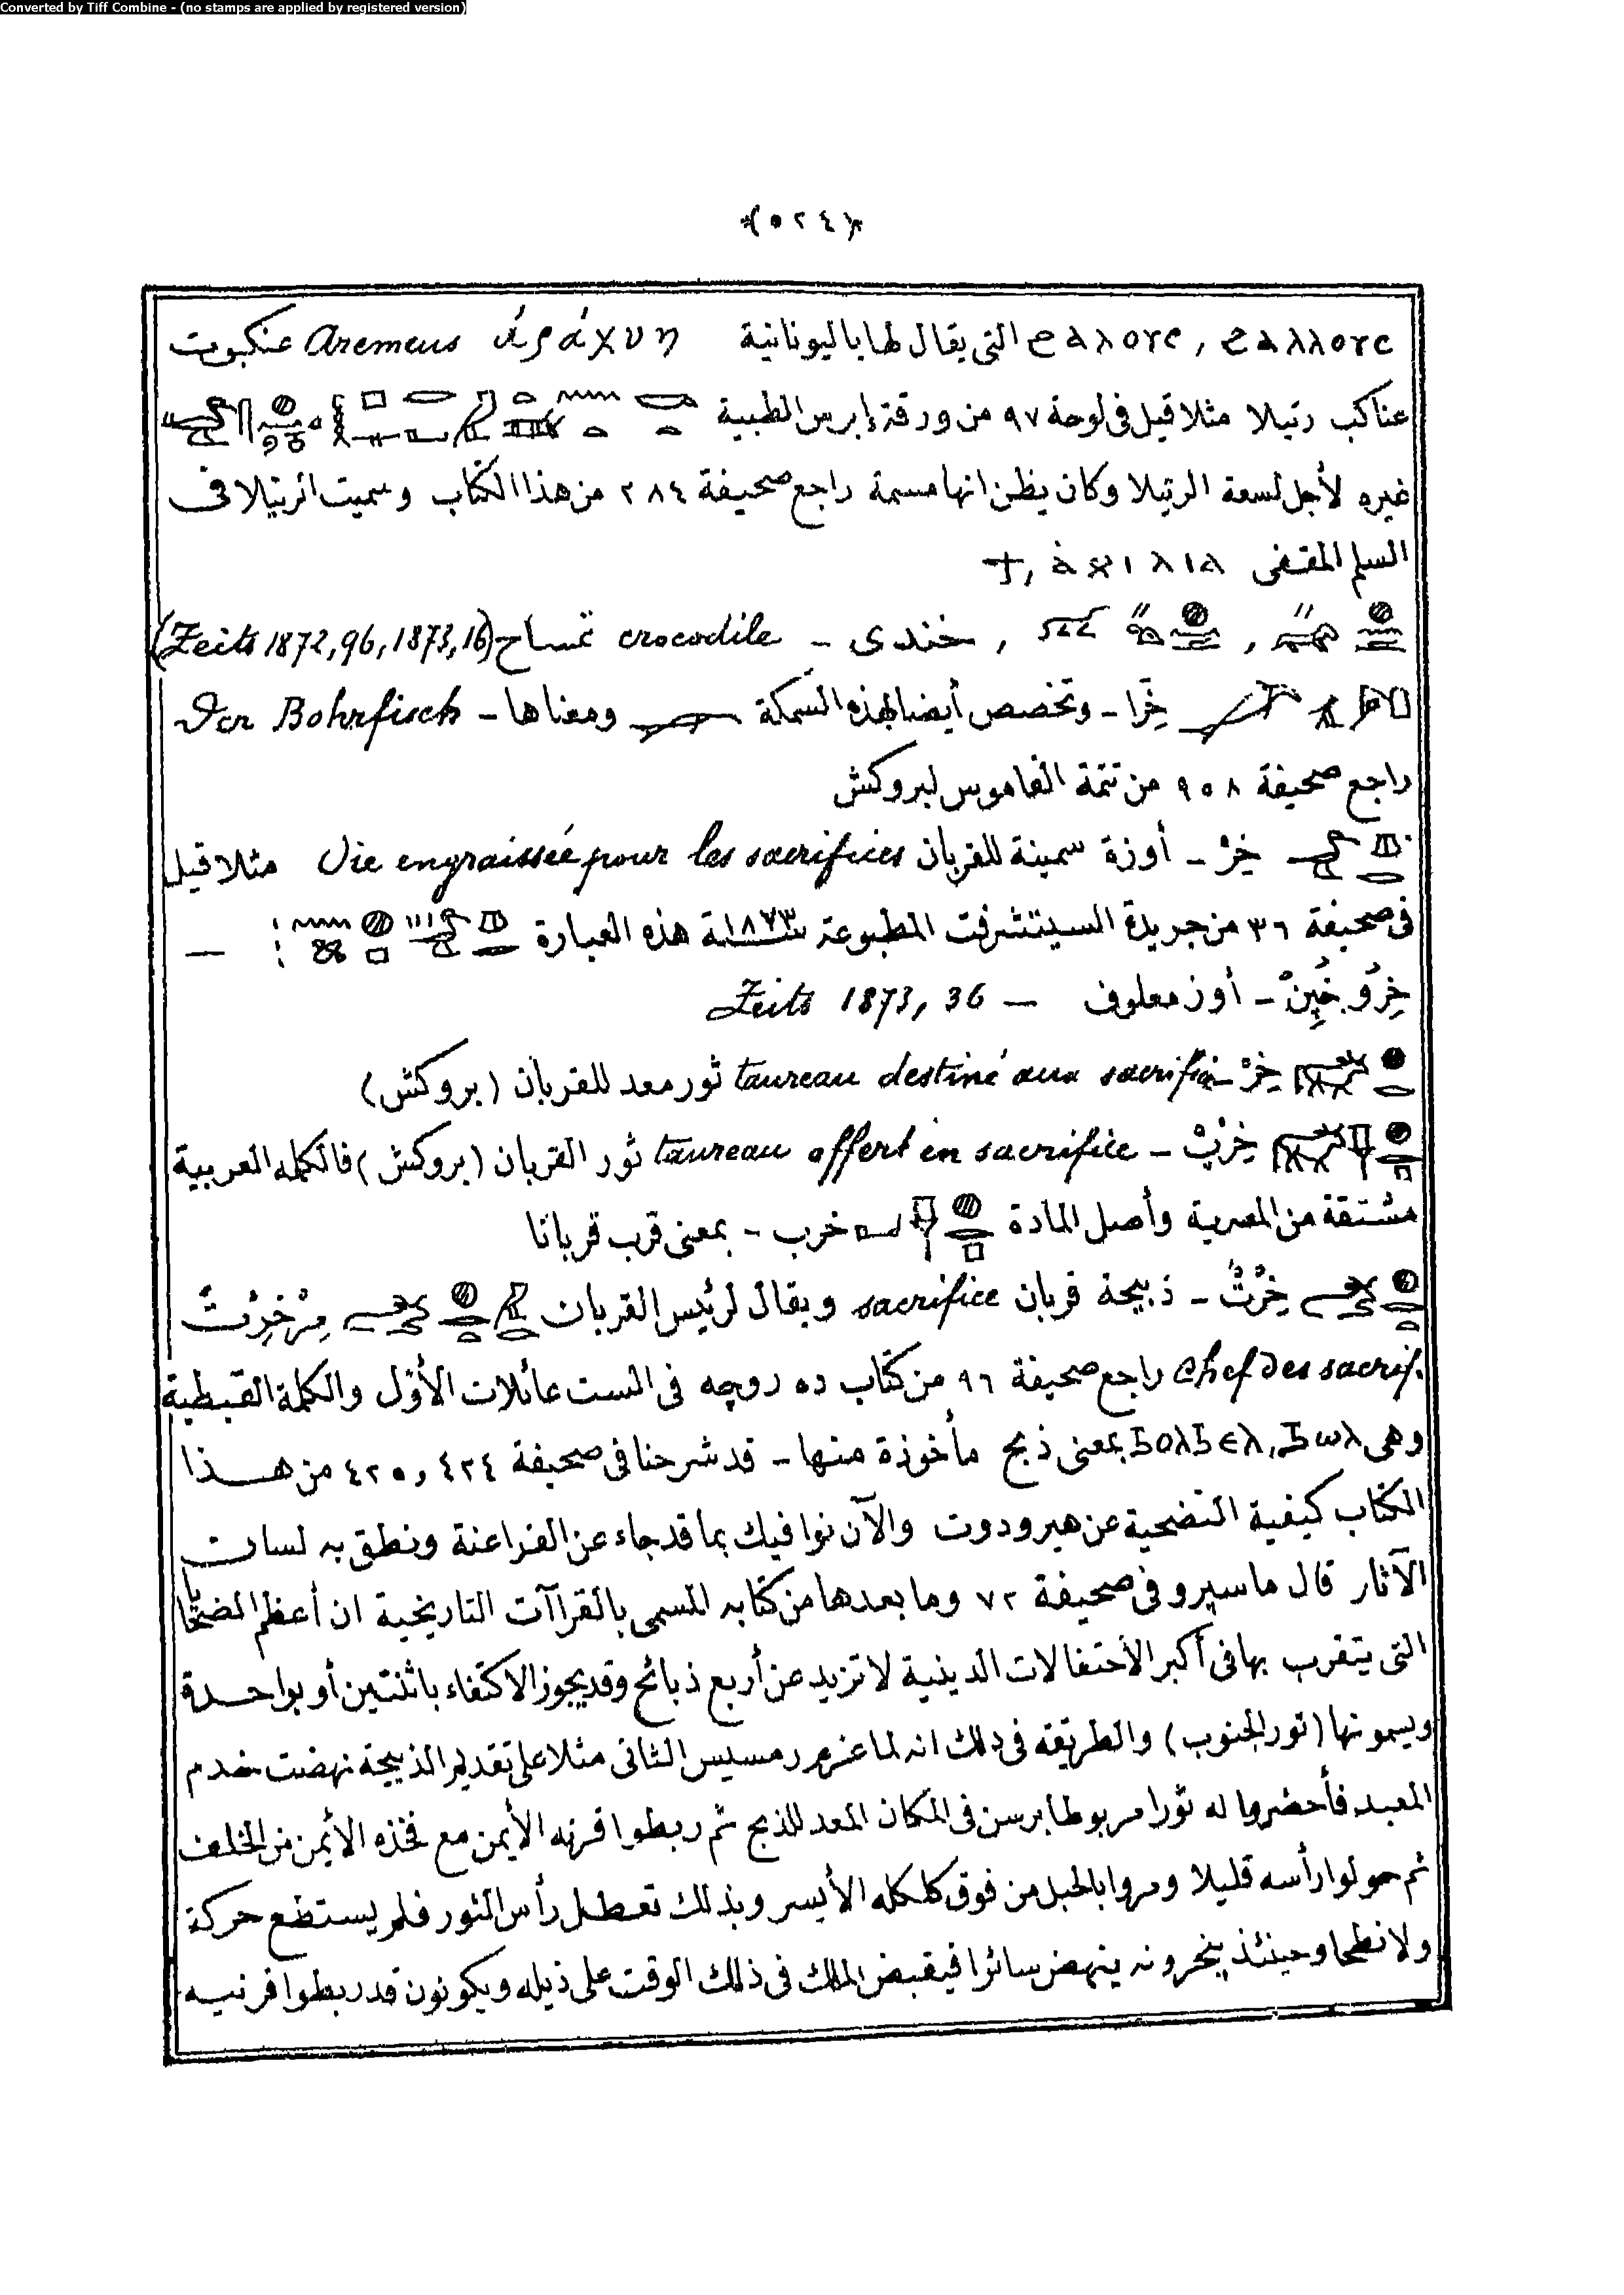 Converted by Tiff Combine - (no stamps are applied by registered version)
﴿٥٢٤﴾
ϩⲁⲗⲗⲟⲩⲥ , ϩⲁⲗⲟⲩⲥ التى يقال لها باليونانية ἀράχνη Aremeus عنكبوت
عناكب رتيلا مثلا قيل فى لوحة ٩٧ من ورقة إبرس الطبية
غيره لأجل لسعة الرتيلا وكان يظن انها مسمة راجع صحيفة ٢٨٤ من هذا الكتاب وسميت الرتيلا فى
السلم المقفى
, , خندى - crocodile تمساح (Zeits 1872, 96, 1873, 16)
خِرَا - وتخصص أيضا لهذه السمكة ومعناها - Der Bohrfisch
راجع صحيفة ٩٥٨ من تتمة القاموس لبروكش
خِرْ - أوزة سمينة للقربان Oie engraissée pour les sacrifices مثلا قيل
فى صحيفة ٣٦ من جريدة السيتتشرفت المطبوعة سنة ١٨٧٣ هذه العبارة —
خِرُو خُپِنْ - أوز معلوف — Zeits 1873, 36
خِرْ - taureau destiné aux sacrifi ثور معد للقربان (بروكش)
خِرْبْ - taureau offert en sacrifice ثور القربان (بروكش) فالكلمه العربية
مشتقة من المصرية وأصل المادة خرب - بمعنى قرب قربانا
خِرْتُ - ذبيحة قربان sacrifice ويقال لرئيس القربان مِرْخِرْتُ
chef des sacrif. راجع صحيفة ٩٦ من كتاب ده روچه فى الست عائلات الأوّل والكلمة القبطية
وهى ϧⲟⲗϧⲉⲗ, ϧⲱⲗ بمعنى ذبح مأخوذة منها - قد شرحنا فى صحيفة ٤٢٤ و ٤٢٥ من هذا
الكتاب كيفية التضحية عن هيرودوت والآن نوافيك بما قد جاء عن الفراعنة ونطق به لسان
الآثار قال ماسپرو فى صحيفة ٧٢ وما بعدها من كتابه المسمى بالقراآت التاريخية ان أعظم الضحايا
التى يتقرب بها فى أكبر الأحتفالات الدينية لا تزيد عن أربع ذبائح وقد يجوز الاكتفاء باثنتين أو بواحدة
ويسمونها (ثور الجنوب) والطريقه فى ذلك انه لما عزم رمسيس الثانى مثلا على تقديم الذبيحة نهضت خدم
المعبد فأحضروا له ثورا مربوطا برسن فى المكان المعد للذبح ثم ربطوا قرنه الأيمن مع فخذه الأيمن من الخلف
ثم حولوا رأسه قليلا ومروا بالحبل من فوق كلكله الأيسر وبذلك تعطل رأس الثور فلم يستطع حركة
ولا نطحا وحينئذ ينخرونه ينهض سائرا فيقبض الملك فى ذلك الوقت على ذيله ويكونون قد ربطوا قرنيه